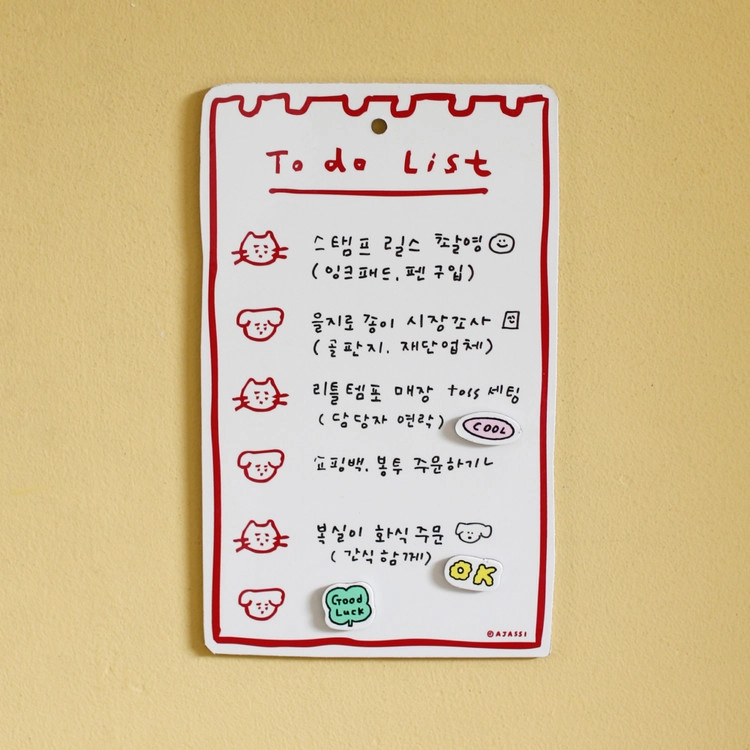 To do List
스탬프 릴스 촬영
(잉크패드, 펜 구입)
을지로 종이 시장조사
(골판지, 재단업체)
리틀템포 매장 toss 세팅
(담당자 연락)
COOL
쇼핑백, 봉투 주문하기
복실이 화식 주문
(간식 함께)
OK
Good
Luck
©AJASSI